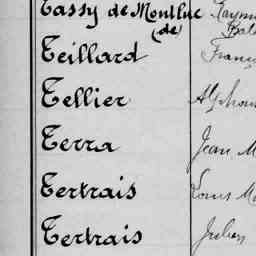 Tassy de Montluc Raym
(de) Bat
Teillard Franç
Tellier Alphon
Terra Jean M
Tertrais Louis M
Tertrais Julien